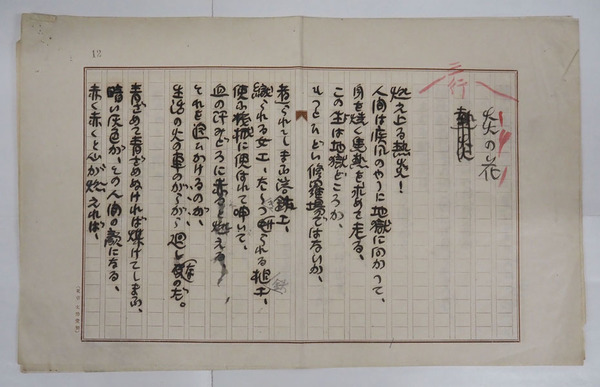 12
三行
炎の花
熱炎
燃え上る熱炎!
人間は疾風のやうに地獄に向かつて、
身を焼く焦熱を求めて走る、
この世は地獄どころか、
もつとひどい修羅場ではないか、
煮られてしまふ溶鉱工、
織られる女工、たゝつ
られる
使ふ機械に使はれて呻いて、
血の汗みどろに赤ると燃える
それを追ひかけるのか、
生活の火の車のがらがら廻し
のだ。
青ざめて青ざめぬければ煤けてしまふ、
暗い灰色が、その人間の敵になる、
赤く赤くと心が燃えれば、